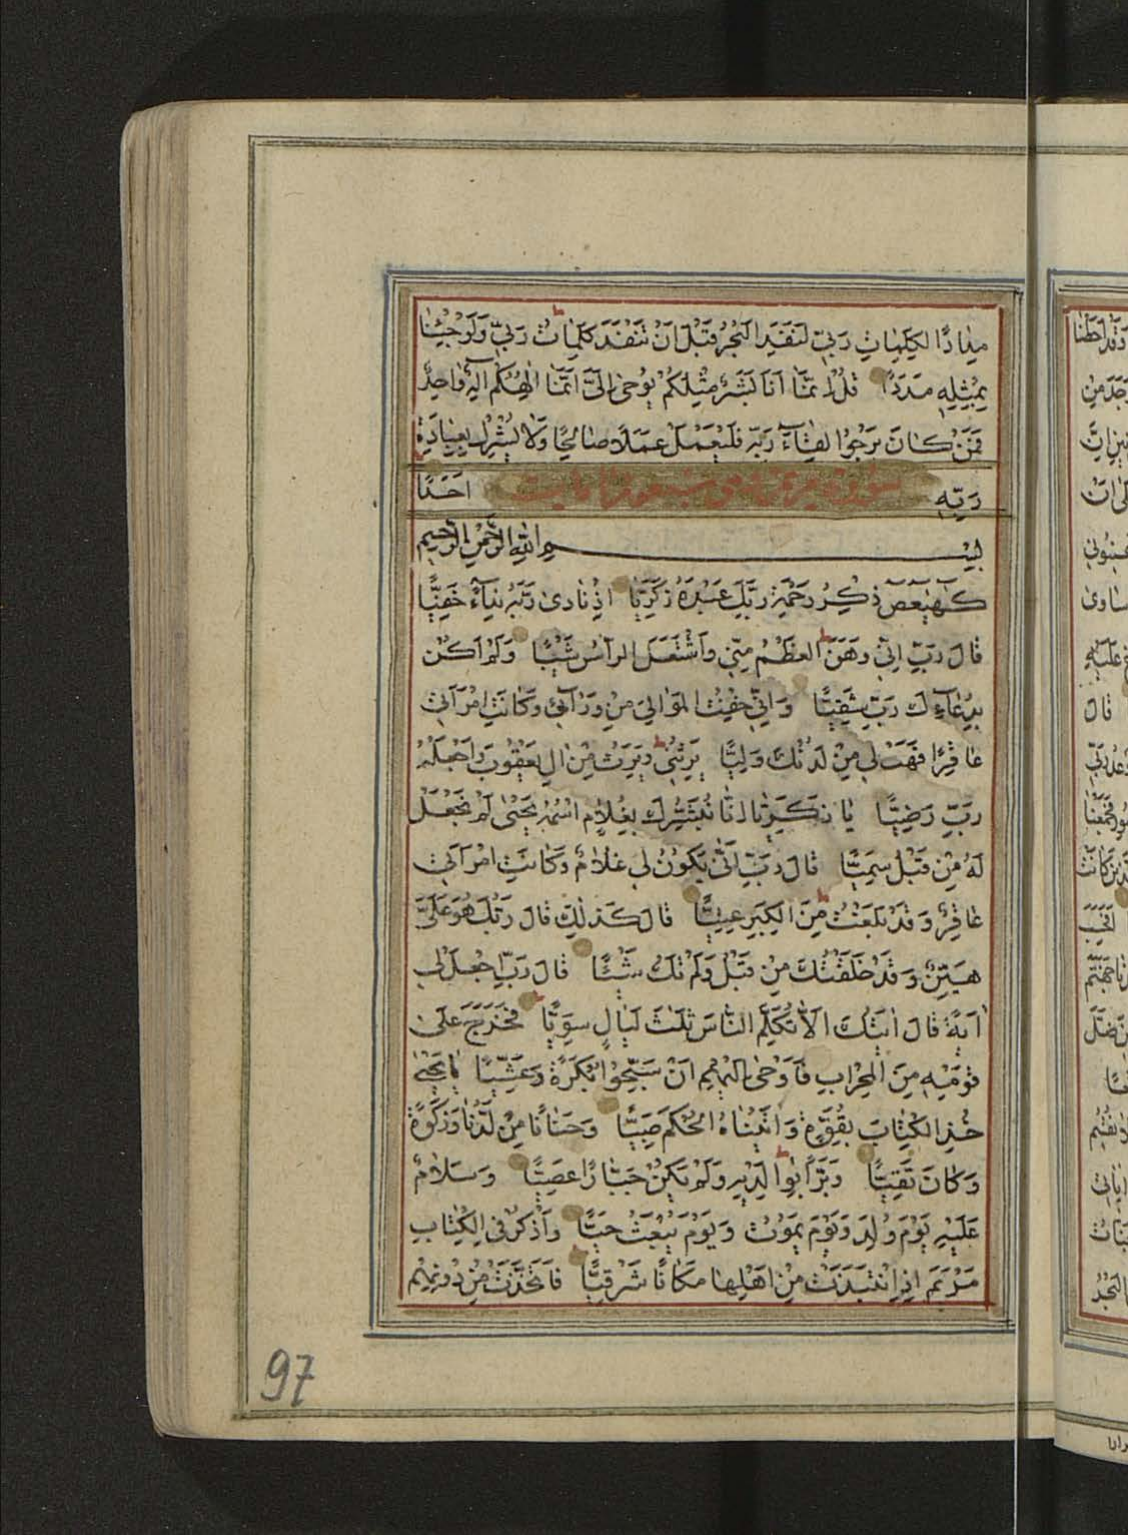 مِدَادًا لِكَلِمَاتِ رَبِّي لَنَفِدَ الْبَحْرُ قَبْلَ اَنْ تَنْفَدَ كَلِمَاتُ رَبِّي وَلَوْ جِئْنَا
بِمِثْلِهِ مَدَدًا قُلْ اِنَّمَا اَنَا بَشَرٌ مِثْلُكُمْ يُوحٰى اِلَيَّ اَنَّمَا اِلٰهُكُمْ اِلٰهٌ وَاحِدٌ
فَمَنْ كَانَ يَرْجُوا لِقَاءَ رَبِّهِ فَلْيَعْمَلْ عَمَلًا صَالِحًا وَلَا يُشْرِكْ بِعِبَادَةِ
رَبِّهِ اَحَدًا
سورة مريم
بِسْمِ اللهِ الرَّحْمٰنِ الرَّحِيمِ
كٓهٰيٰعٓصٓ ذِكْرُ رَحْمَةِ رَبِّكَ عَبْدَهُ زَكَرِيَّا اِذْ نَادٰى رَبَّهُ نِدَاءً خَفِيًّا
قَالَ رَبِّ اِنِّي وَهَنَ الْعَظْمُ مِنِّي وَاشْتَعَلَ الرَّاْسُ شَيْبًا وَلَمْ اَكُنْ
بِدُعَائِكَ رَبِّ شَقِيًّا وَاِنِّي خِفْتُ الْمَوَالِيَ مِنْ وَرَائِي وَكَانَتِ امْرَاَتِي
عَاقِرًا فَهَبْ لِي مِنْ لَدُنْكَ وَلِيًّا يَرِثُنِي وَيَرِثُ مِنْ اٰلِ يَعْقُوبَ وَاجْعَلْهُ
رَبِّ رَضِيًّا يَا زَكَرِيَّا اِنَّا نُبَشِّرُكَ بِغُلَامٍ اسْمُهُ يَحْيٰى لَمْ نَجْعَلْ
لَهُ مِنْ قَبْلُ سَمِيًّا قَالَ رَبِّ اَنّٰى يَكُونُ لِي غُلَامٌ وَكَانَتِ امْرَاَتِي
عَاقِرًا وَقَدْ بَلَغْتُ مِنَ الْكِبَرِ عِتِيًّا قَالَ كَذٰلِكَ قَالَ رَبُّكَ هُوَ عَلَيَّ
هَيِّنٌ وَقَدْ خَلَقْتُكَ مِنْ قَبْلُ وَلَمْ تَكُ شَيْئًا قَالَ رَبِّ اجْعَلْ لِي
اٰيَةً قَالَ اٰيَتُكَ اَلَّا تُكَلِّمَ النَّاسَ ثَلٰثَ لَيَالٍ سَوِيًّا فَخَرَجَ عَلٰى
قَوْمِهِ مِنَ الْمِحْرَابِ فَاَوْحٰى اِلَيْهِمْ اَنْ سَبِّحُوا بُكْرَةً وَعَشِيًّا يَا يَحْيٰى
خُذِ الْكِتَابَ بِقُوَّةٍ وَاٰتَيْنَاهُ الْحُكْمَ صَبِيًّا وَحَنَانًا مِنْ لَدُنَّا وَزَكٰوةً
وَكَانَ تَقِيًّا وَبَرًّا بِوَالِدَيْهِ وَلَمْ يَكُنْ جَبَّارًا عَصِيًّا وَسَلَامٌ
عَلَيْهِ يَوْمَ وُلِدَ وَيَوْمَ يَمُوتُ وَيَوْمَ يُبْعَثُ حَيًّا وَاذْكُرْ فِي الْكِتَابِ
مَرْيَمَ اِذِ انْتَبَذَتْ مِنْ اَهْلِهَا مَكَانًا شَرْقِيًّا فَاتَّخَذَتْ مِنْ دُونِهِمْ
97